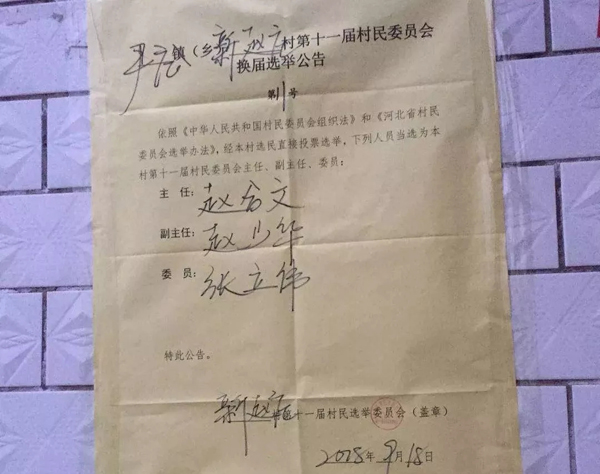 镇（乡新赵庄村第十一届村民委员会
换届选举公告
第11号
依照《中华人民共和国村民委员会组织法》和《河北省村民
委员会选举办法》，经本村选民直接投票选举，下列人员当选为本
村第十一届村民委员会主任、副主任、委员：
主 任：赵合文
副主任：赵少华
委 员：张立伟
特此公告。
新赵庄十一届村民选举委员会（盖章）
2018年9月18日